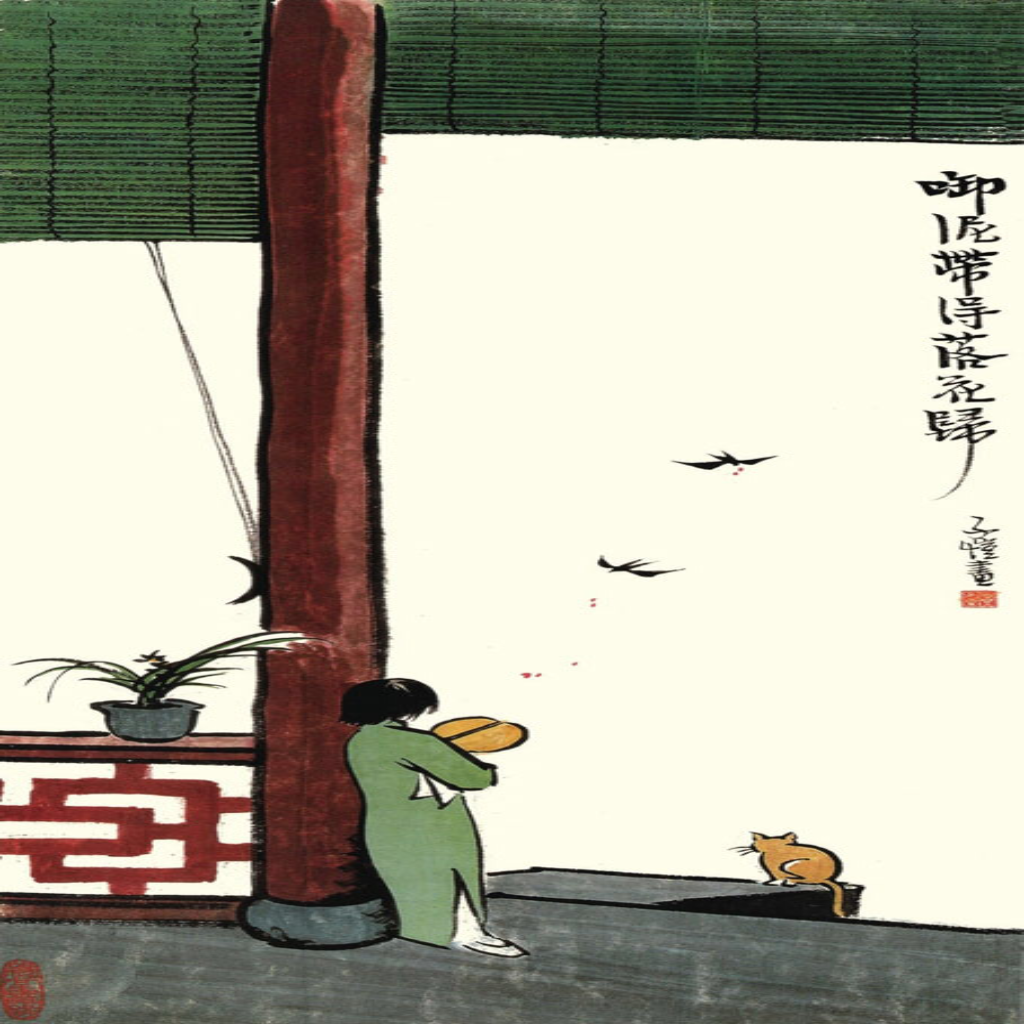 啣泥帶得落花歸
子愷畫